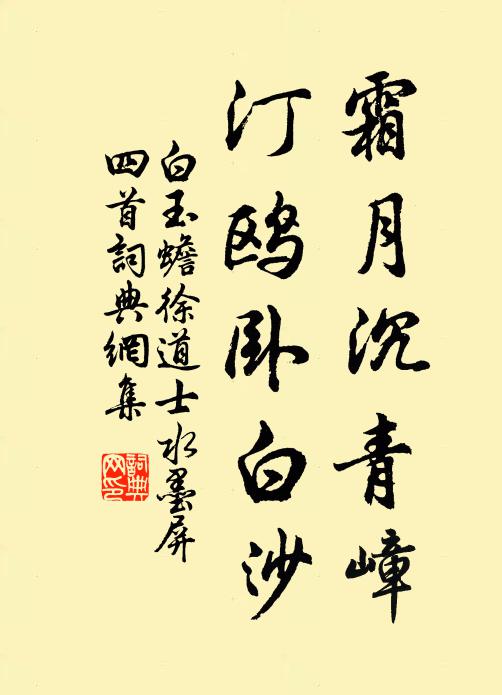 霜月沉青嶂
汀鸥卧白沙
白玉蟾徐道士水墨屏
四首詞典網集
詞典网印